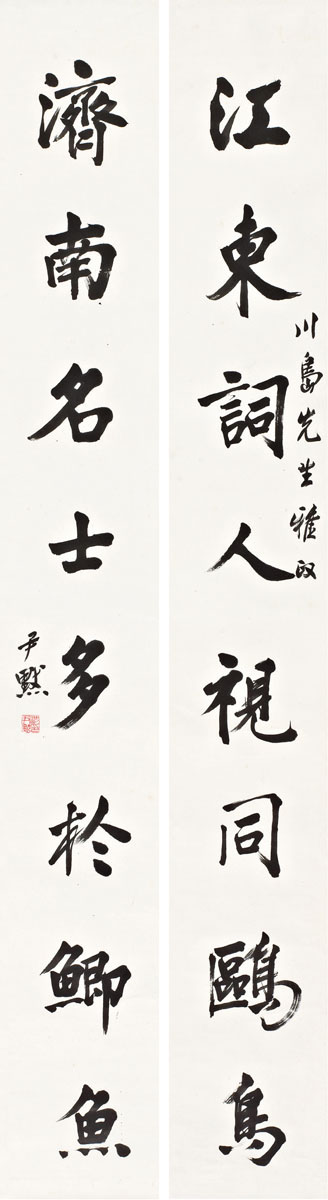 川島先生雅政
江東詞人視同鷗鳥
濟南名士多於鯽魚
尹默